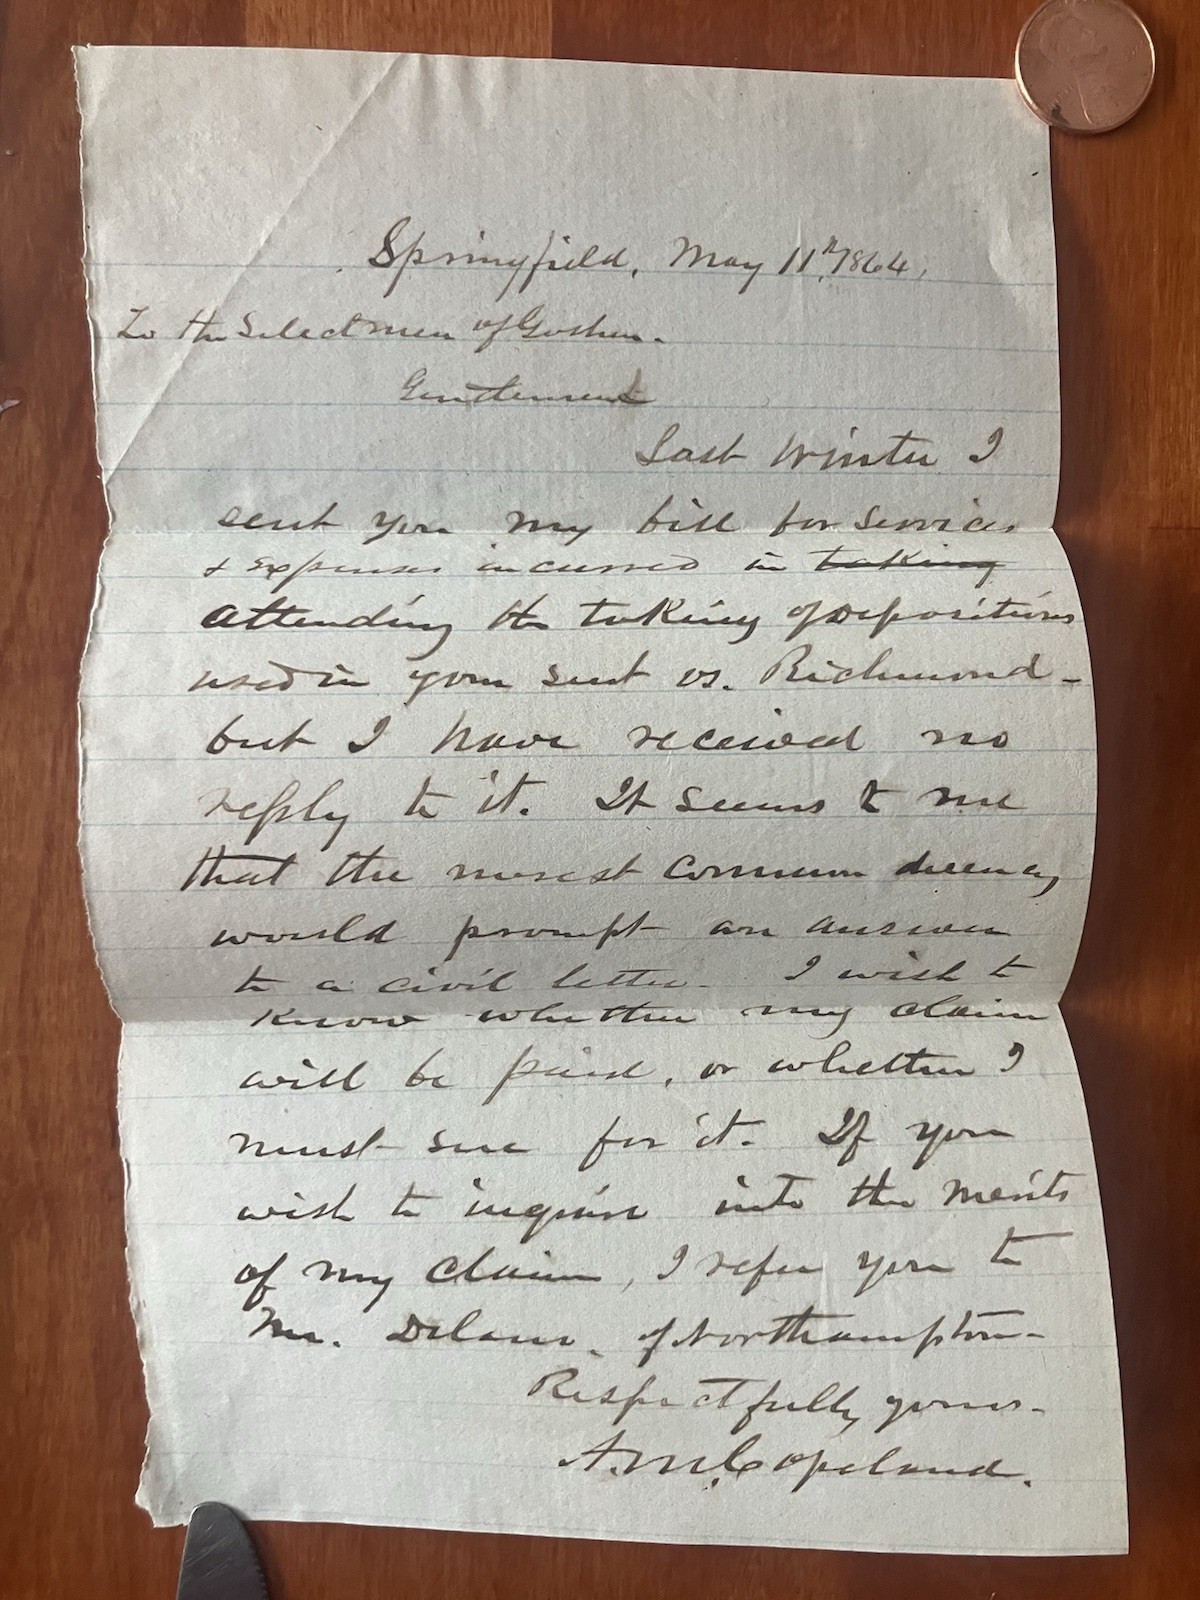 Springfield, May 11th, 1864,
To the Selectmen of Goshen.
Gentlemen
Last Winter I
sent you my bill for services
& Expenses incurred in taking
attending the taking of Depositions
used in your suit vs. Richmond -
but I have received no
reply to it. It seems to me
that the merest common decency
would prompt an answer
to a civil letter. I wish to
know whether my claim
will be paid, or whether I
must sue for it. If you
wish to inquire into the merits
of my claim, I refer you to
Mr. Delano, of Northampton -
Respectfully yours -
A. M. Copeland.